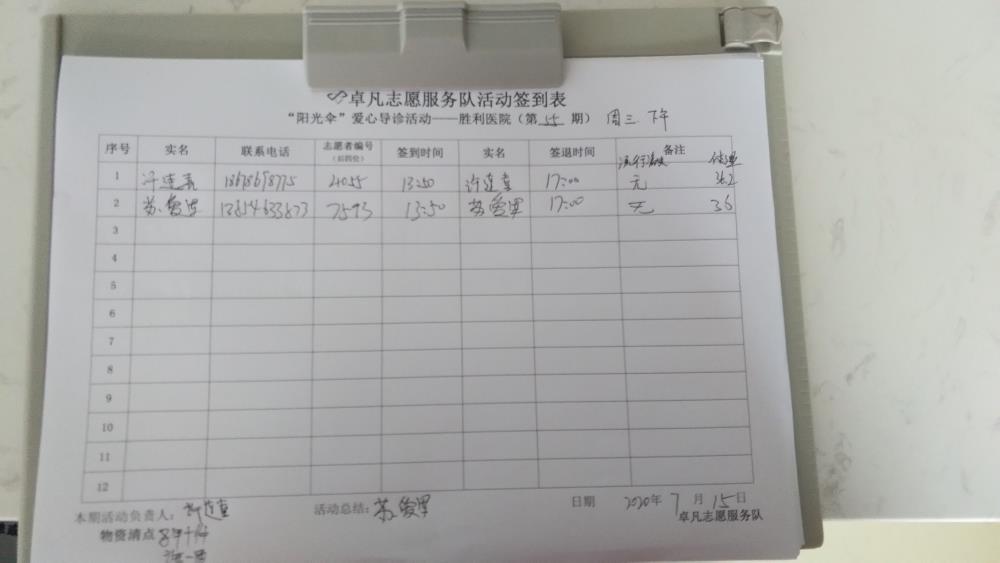 卓凡志愿服务队活动签到表
“阳光伞”爱心导诊活动——胜利医院（第 55 期） 周三 下午
序号 实名 联系电话 志愿者编号（后四位） 签到时间 实名 签退时间 备注 体温
1 许连喜 4055 13:50 许连喜 17:00 无 36.2
2 苏爱军 7593 13:50 苏爱军 17:00 无 36
3
4
5
6
7
8
9
10
11
12
本期活动负责人： 许连喜 活动总结： 苏爱军 日期 2020年 7 月 15 日
卓凡志愿服务队
物资清点